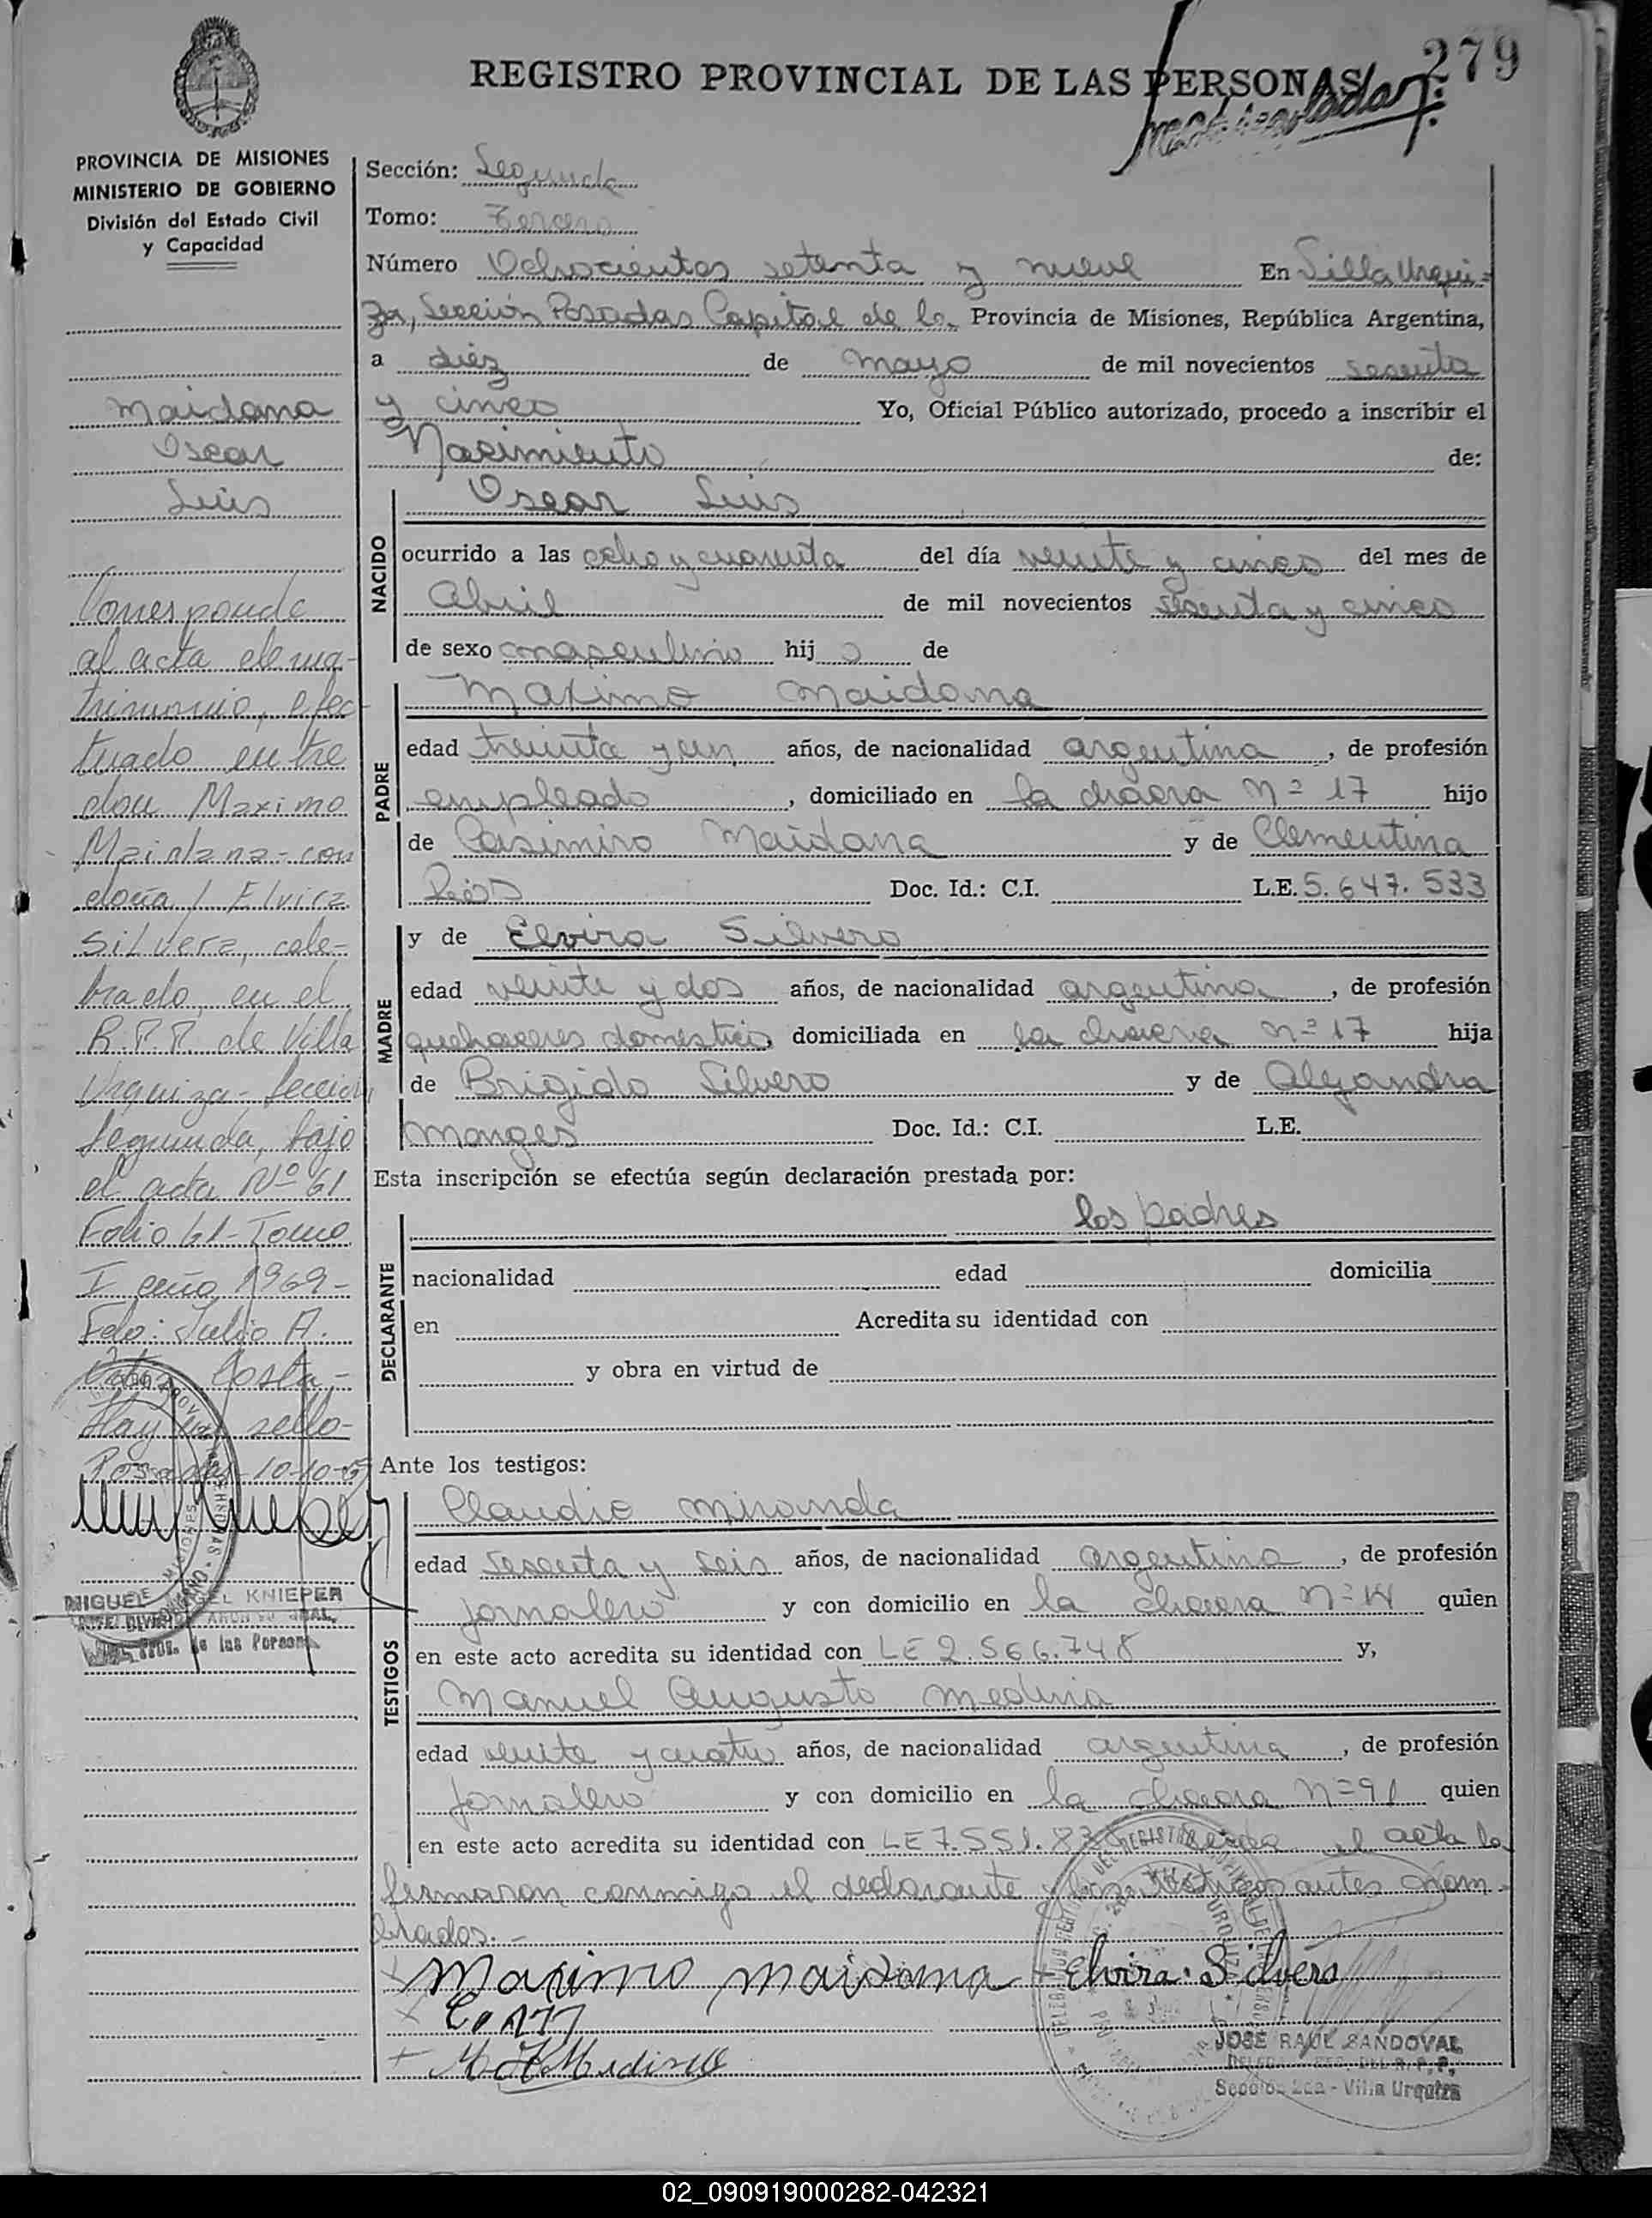 279
REGISTRO PROVINCIAL DE LAS PERSONAS
PROVINCIA DE MISIONES
MINISTERIO DE GOBIERNO
División del Estado Civil
y Capacidad
Maidana
Oscar
Luis
Corresponde
al acta de ma-
trimonio, efec-
tuado entre
don Maximo
Maidana - con
doña Elvira
Silvera, cele-
brado, en el
R.P.P. de Villa
Urquiza - Sección
Segunda, bajo
el acta Nº 61
Folio 61 - Tomo
I año 1969 -
Fdo: Julio A.
Costa -
Hay un sello -
Posadas - 10-10-
MIGUEL ANGEL KNIEPER
JEFE DIVISION
Prov. de las Personas
Sección: Segunda
Tomo: Tercero
Número Ochocientos setenta y nueve En Villa Urqui=
za, Sección Posadas Capital de la Provincia de Misiones, República Argentina,
a diez de mayo de mil novecientos sesenta
y cinco Yo, Oficial Público autorizado, procedo a inscribir el
Nacimiento de:
NACIDO
Oscar Luis
ocurrido a las ocho y cuarenta del día veinte y cinco del mes de
Abril de mil novecientos sesenta y cinco
de sexo masculino hijo de
PADRE
Maximo Maidana
edad treinta y un años, de nacionalidad argentina, de profesión
empleado, domiciliado en la chacra nº 17 hijo
de Casimiro Maidana y de Clementina
Rios Doc. Id.: C.I. L.E. 5.647.533
MADRE
y de Elvira Silvero
edad veinte y dos años, de nacionalidad argentina, de profesión
quehaceres domestics domiciliada en la chacra nº 17 hija
de Brigido Silvero y de Alejandra
Monges Doc. Id.: C.I. L.E.
Esta inscripción se efectúa según declaración prestada por:
DECLARANTE
los padres
nacionalidad edad domicilia
en Acredita su identidad con
y obra en virtud de
Ante los testigos:
TESTIGOS
Claudio Miranda
edad sesenta y seis años, de nacionalidad argentina, de profesión
jornalero y con domicilio en la chacra nº 14 quien
en este acto acredita su identidad con LE 2.566.748 y,
Manuel Augusto Medina
edad veinte y cuatro años, de nacionalidad argentina, de profesión
jornalero y con domicilio en la chacra nº 91 quien
en este acto acredita su identidad con LE 7.551.83 Leida el acta la
firmaron conmigo el declarante y los testigos antes nom-
brados. -
Maximo maidana + Elvira Silvero
+ M A Medina
JOSE RAUL SANDOVAL
DELEGADO R.P.P.
Sección 2da - Villa Urquiza
02_090919000282-042321